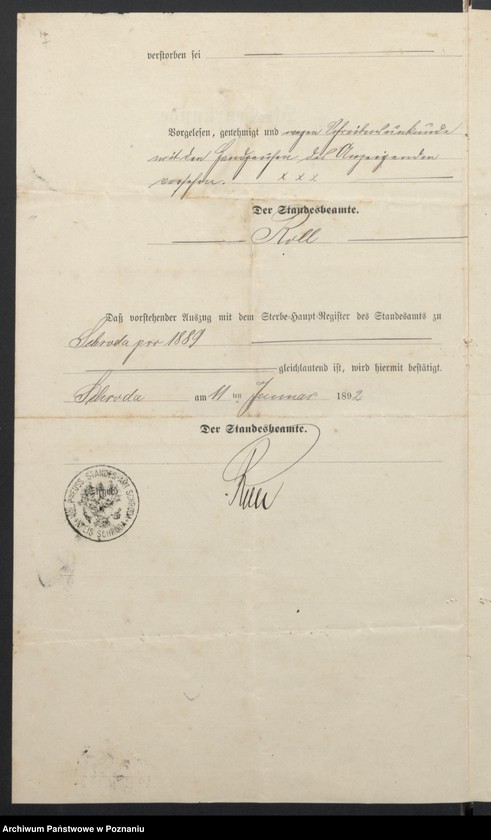 verstorben sei
Vorgelesen, genehmigt und wegen Schreibensunkunde
mit den Handzeichen des Anzeigenden
versehen. x x x
Der Standesbeamte.
Roll
Daß vorstehender Auszug mit dem Sterbe-Haupt-Register des Standesamts zu
Schroda pro 1889
gleichlautend ist, wird hiermit bestätigt.
Schroda am 11 ten Januar 1892
Der Standesbeamte.
PREUSS. STANDESAMT SCHRODA
KREIS SCHRODA
Archiwum Państwowe w Poznaniu